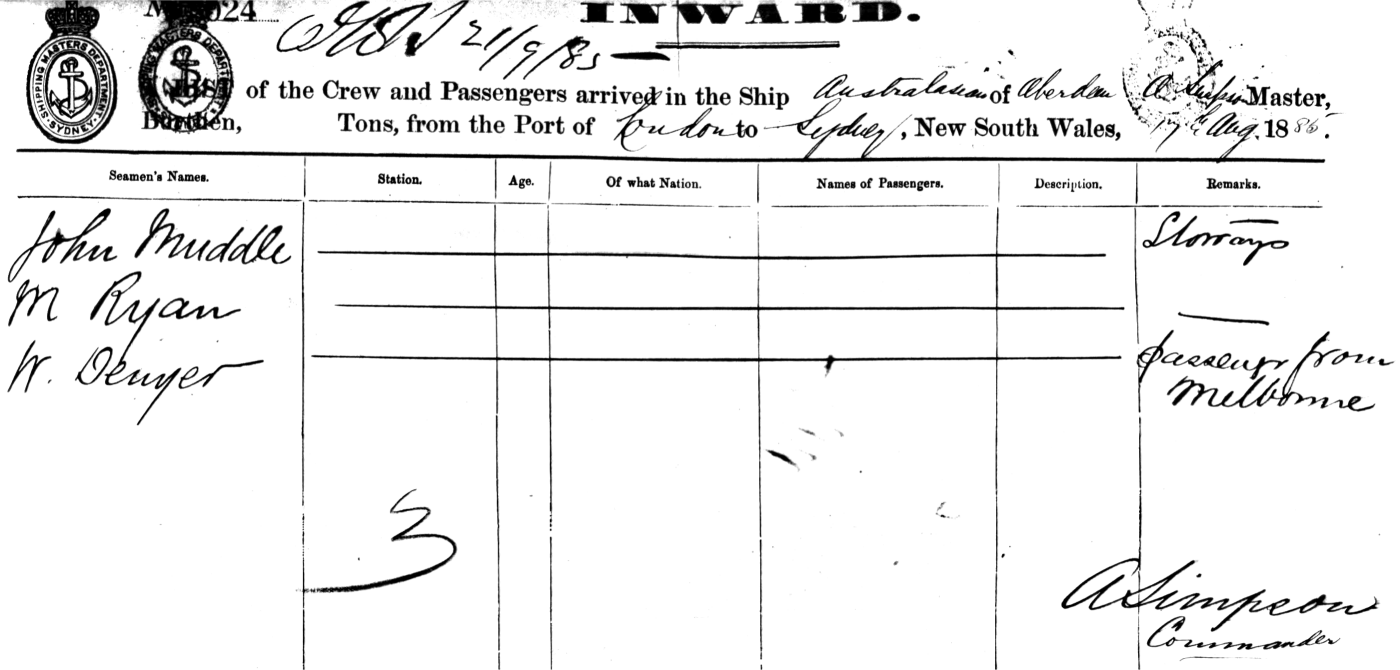 024
INWARD.
21/9/85
SHIPPING MASTERS DEPARTMENT. SYDNEY
LIST of the Crew and Passengers arrived in the Ship Australasian of Aberdeen A Simpson Master,
Burthen, Tons, from the Port of London to Sydney, New South Wales, 17th Aug. 1885.
Seamen's Names. Station. Age. Of what Nation. Names of Passengers. Description. Remarks.
John Muddle Stoways
M Ryan
W. Denyer passengr from
Melborne
3
A Simpson
Commander